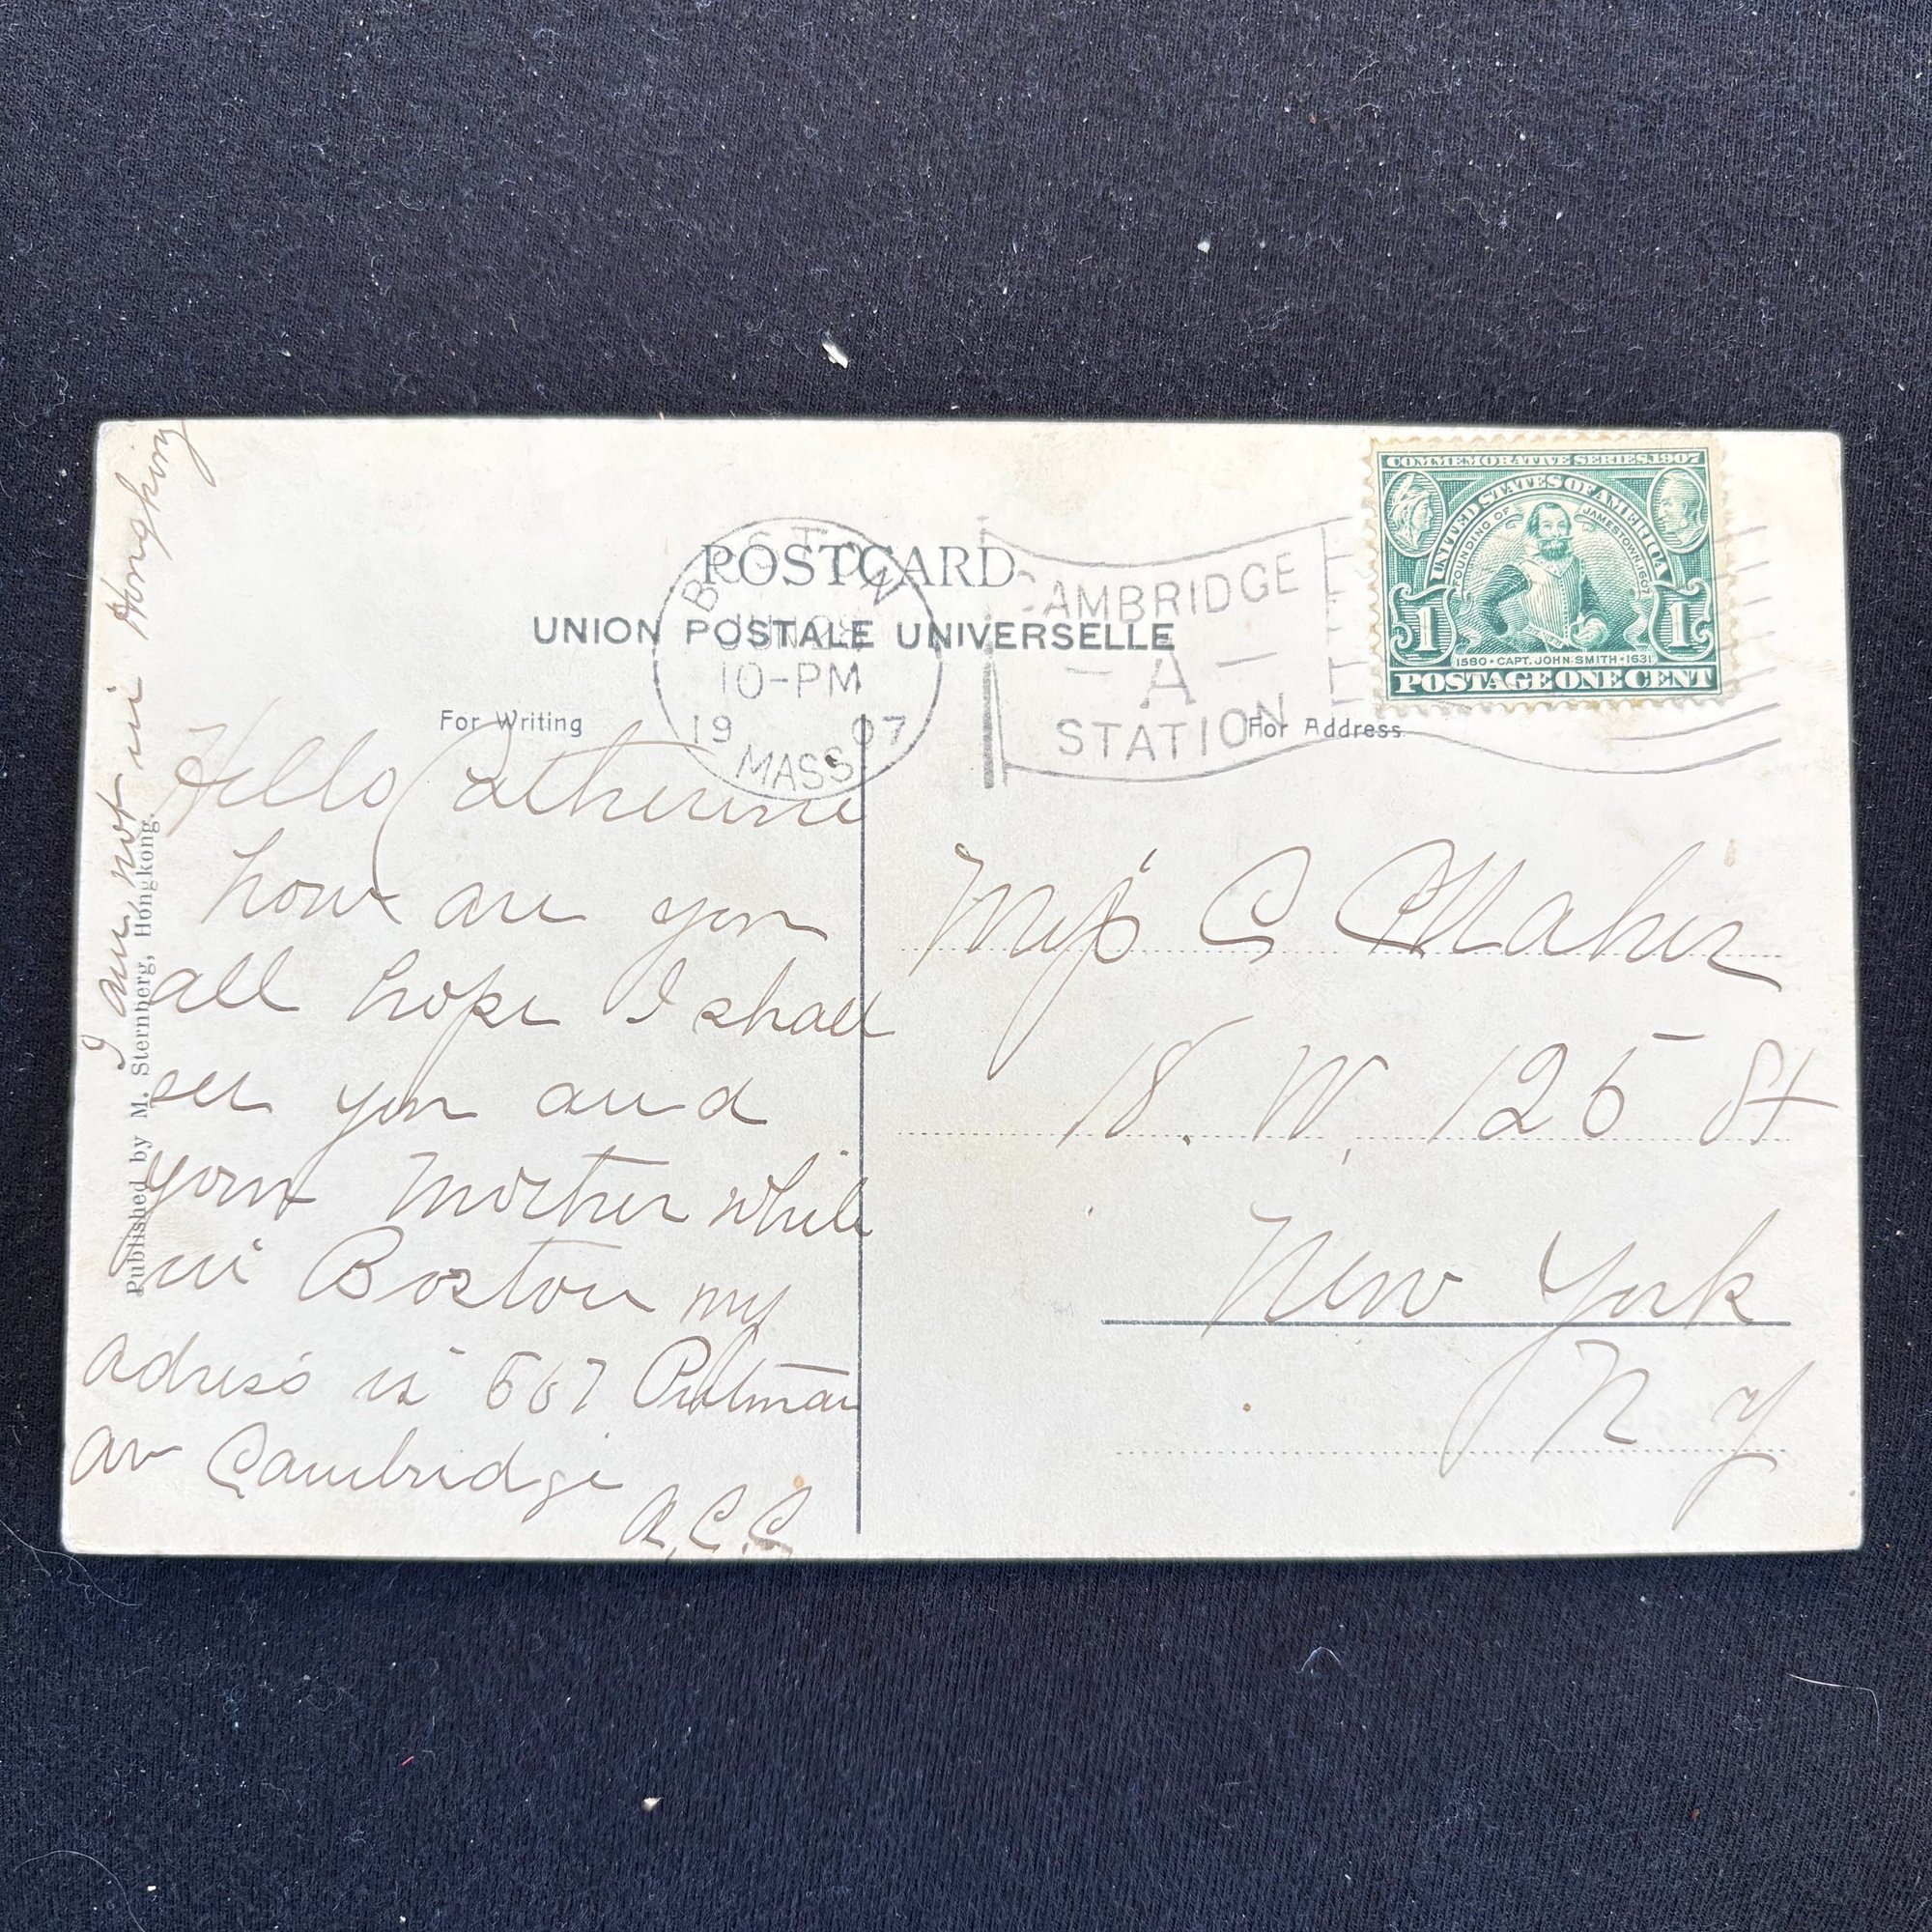 COMMEMORATIVE SERIES 1907
UNITED STATES OF AMERICA
FOUNDING OF JAMESTOWN 1607
1 1
1580 • CAPT. JOHN SMITH • 1631
POSTAGE ONE CENT
POSTCARD
UNION POSTALE UNIVERSELLE
BOSTON
10-PM
19 07
MASS.
CAMBRIDGE
- A -
STATION
For Writing
For Address
I am not in Hongking
Published by M. Sternberg, Hongkong.
Hello Catherine
how are you
all hope I shall
see you and
your Mother while
in Boston my
adress is 567 Putman
av Cambridge
A.C.C.
Miss C Maher
18. W. 125 St
New York
N Y